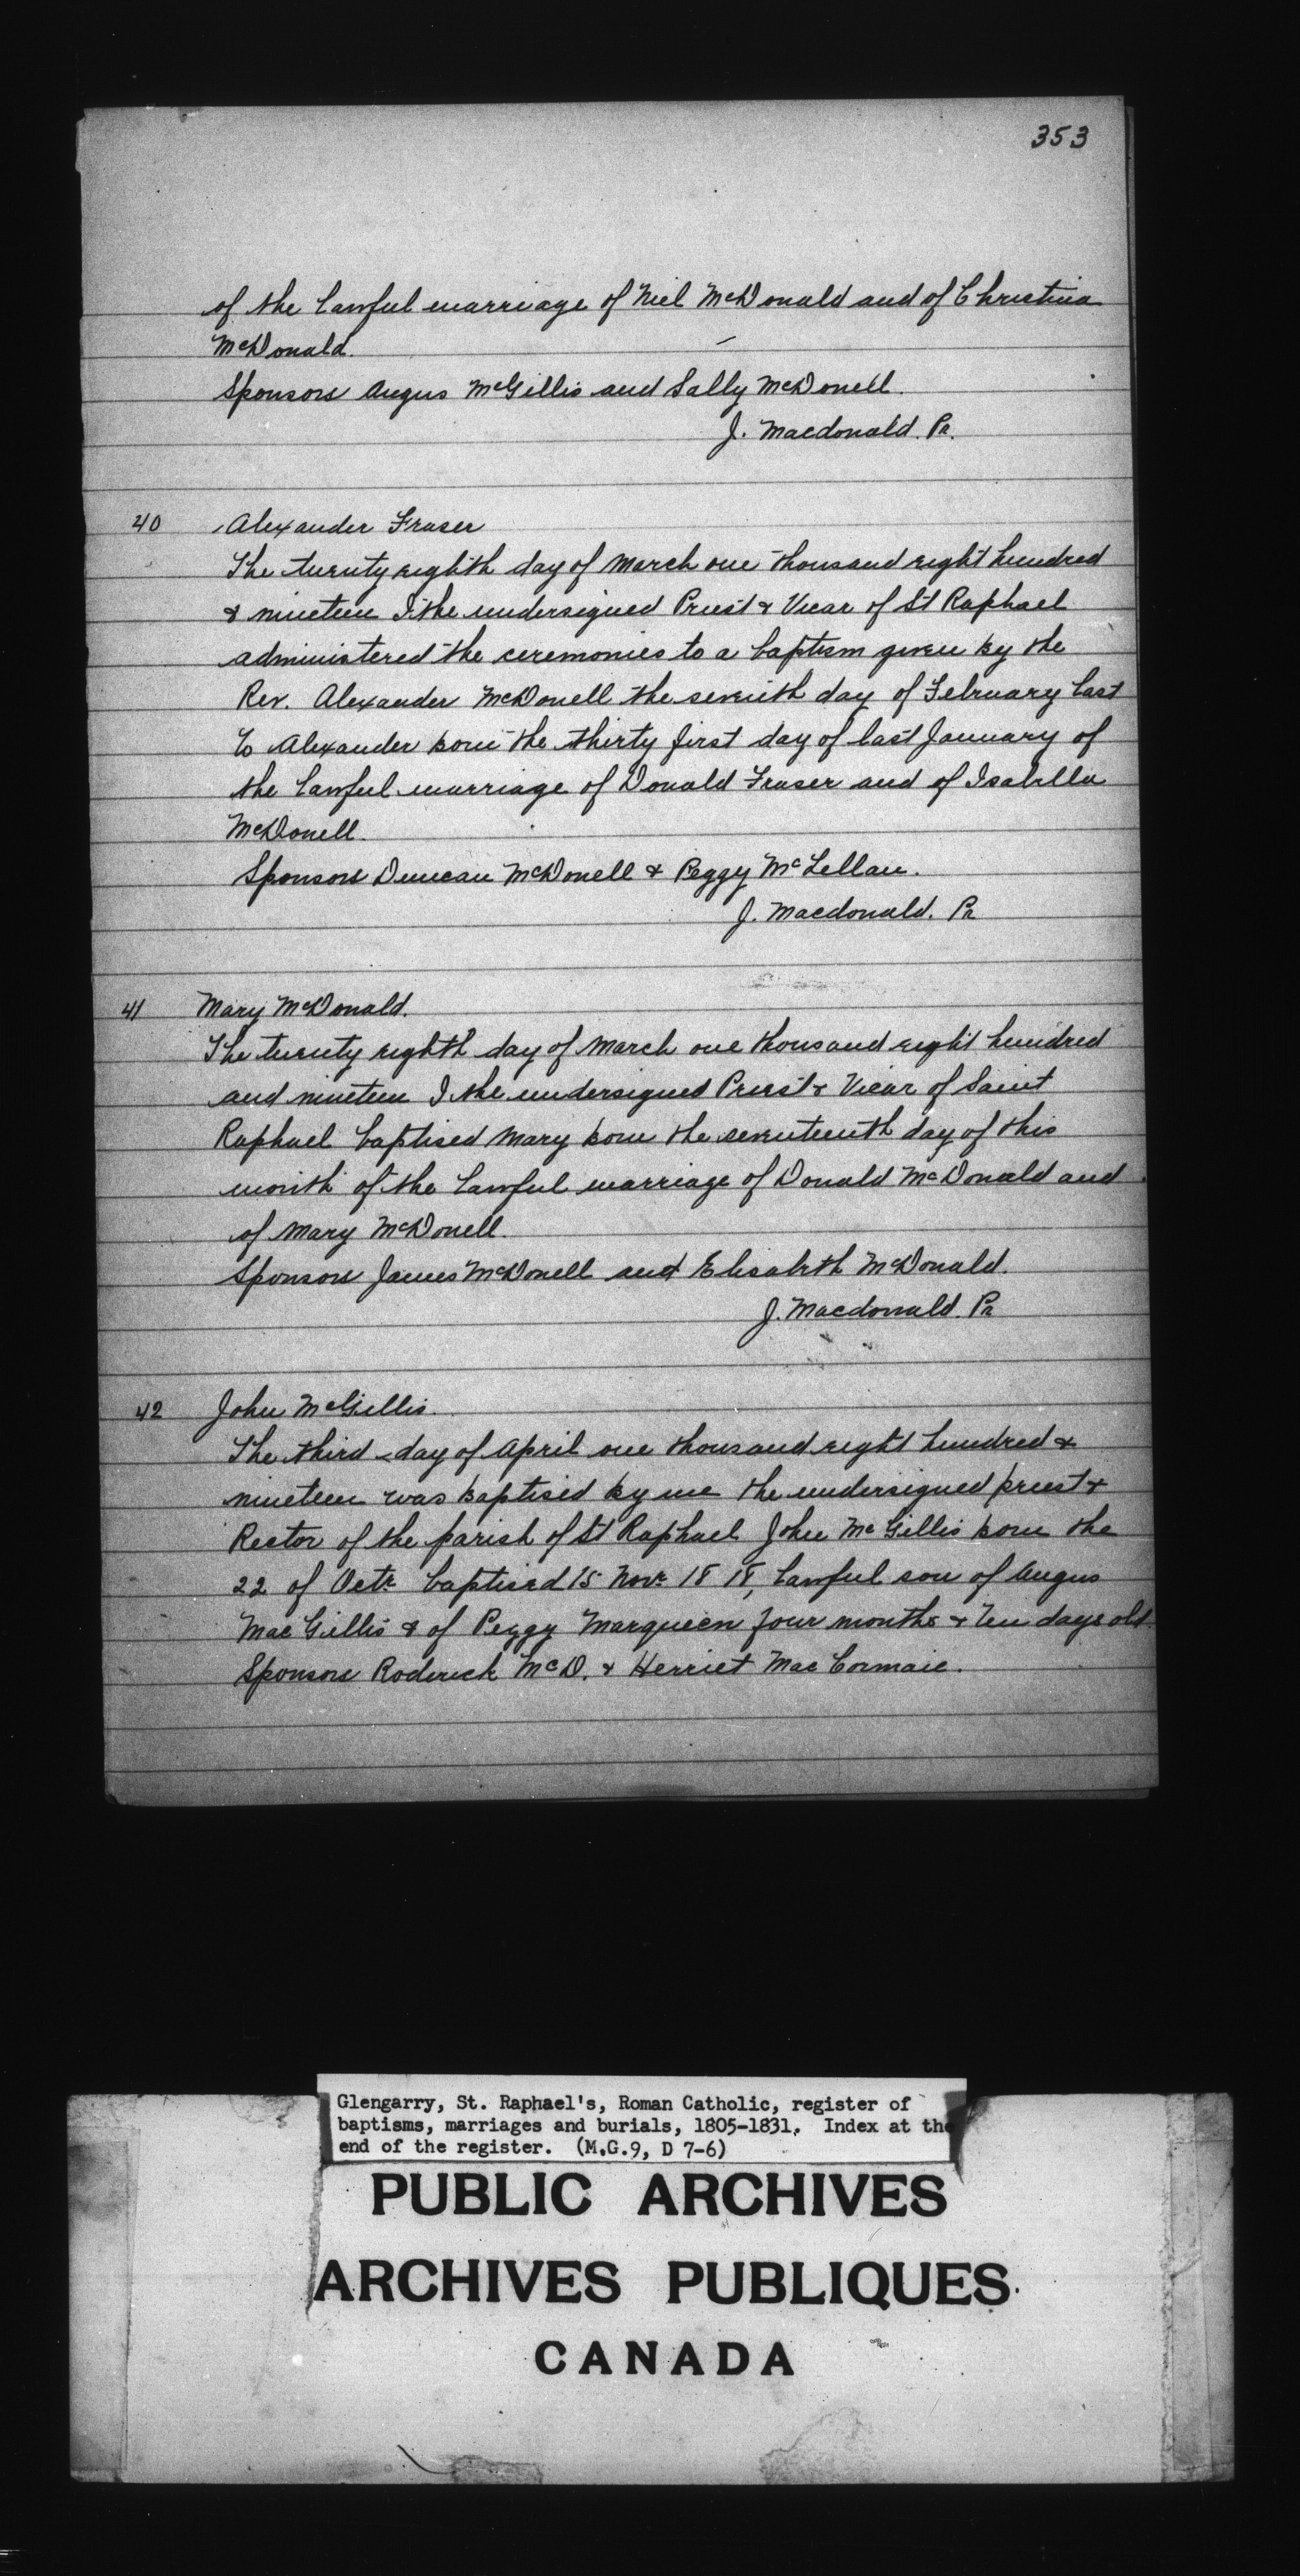 353
of the lawful marriage of Niel McDonald and of Christina
McDonald.
Sponsors Angus McGillis and Sally McDonell.
J. Macdonald. Pr.
40 Alexander Fraser
The twenty eighth day of March one thousand eight hundred
& nineteen I the undersigned Priest & Vicar of St Raphael
administered the ceremonies to a baptism given by the
Rev. Alexander McDonell the seventh day of February last
to Alexander born the thirty first day of last January of
the lawful marriage of Donald Fraser and of Isabella
McDonell.
Sponsors Duncan McDonell & Peggy McLellan.
J. Macdonald. Pr
41 Mary McDonald.
The twenty eighth day of March one thousand eight hundred
and nineteen I the undersigned Priest & Vicar of Saint
Raphael baptised Mary born the seventeenth day of this
month of the lawful marriage of Donald McDonald and
of Mary McDonell.
Sponsors James McDonell and Elisabeth McDonald.
J. Macdonald. Pr
42 John McGillis.
The third day of April one thousand eight hundred &
nineteen was baptised by me the undersigned priest &
Rector of the parish of St Raphael John McGillis born the
22 of Octr baptised 15 Novr 1818, lawful son of Angus
MacGillis & of Peggy Marqueen four months & ten days old.
Sponsors Roderick McD. & Herriet MacCormaic.
Glengarry, St. Raphael's, Roman Catholic, register of
baptisms, marriages and burials, 1805-1831. Index at the
end of the register. (M.G.9, D 7-6)
PUBLIC ARCHIVES
ARCHIVES PUBLIQUES
CANADA